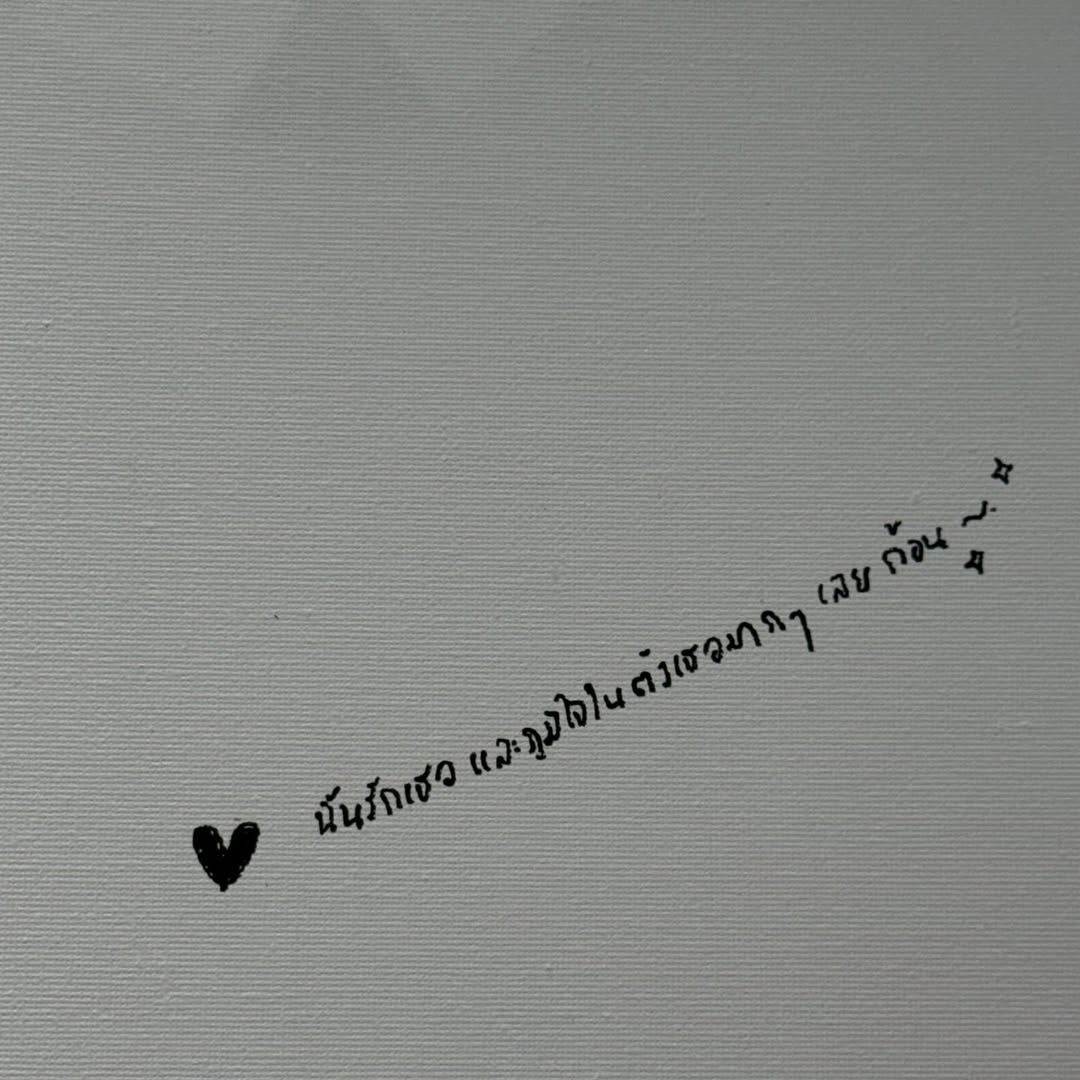 นั้นรักเธอ และภูมิใจในตัวเธอมากๆ เลย ก้อน ~